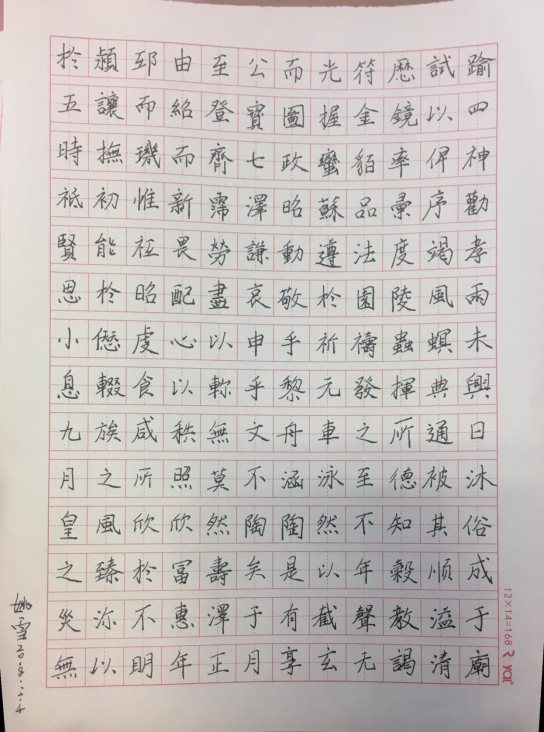 於頳邳由至公而光符歷試踰
五讓而紹登寶圖握金鏡以四
時撫璣而齊七政蠻貊率俾神
祗初惟新霈澤昭蘇品彙序勸
賢能祗畏勞謙動遵法度竭孝
思於昭配盡哀敬於園陵風雨
小僁虔心以申乎祈禱蟲螟未
息輟食以軫乎黎元發揮典興
九族咸秩無文舟車之所通日
月之所照莫不涵泳至德被沐
皇風欣欣然陶陶然不知其俗
之臻於富壽矣是以年穀順成
災沴不惠澤于有截聲教溢于
無以明年正月享玄元謁清廟
12×14=168
姚雪